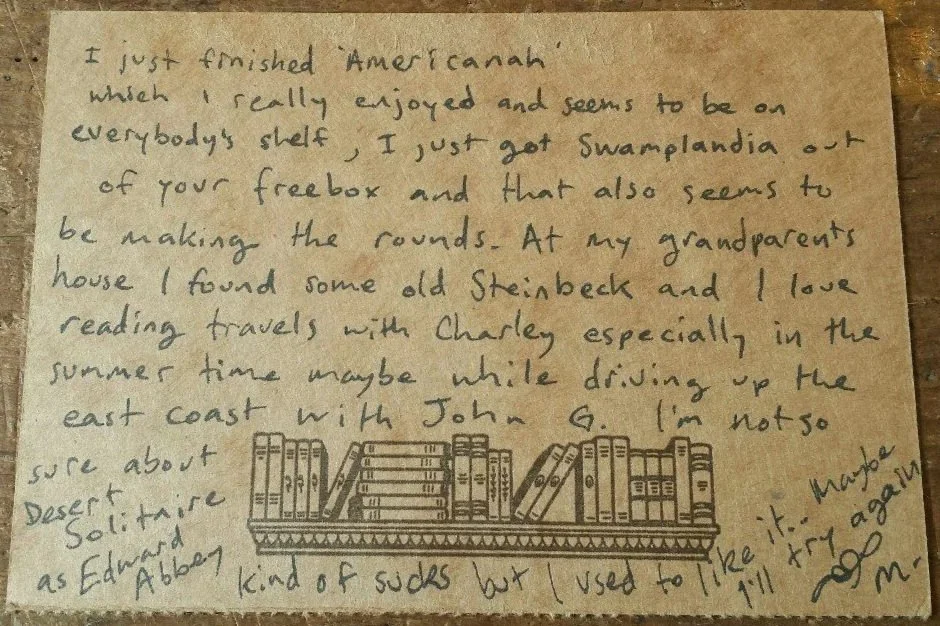 I just finished 'Americanah'
which I really enjoyed and seems to be on
everybody's shelf, I just got Swamplandia out
of your freebox and that also seems to
be making the rounds. At my grandparents
house I found some old Steinbeck and I love
reading travels with Charley especially in the
summer time maybe while driving up the
east coast with John G. I'm not so
sure about
Desert
Solitaire
as Edward
Abbey
kind of sucks but I used to like it.. Maybe
I'll try again
M-